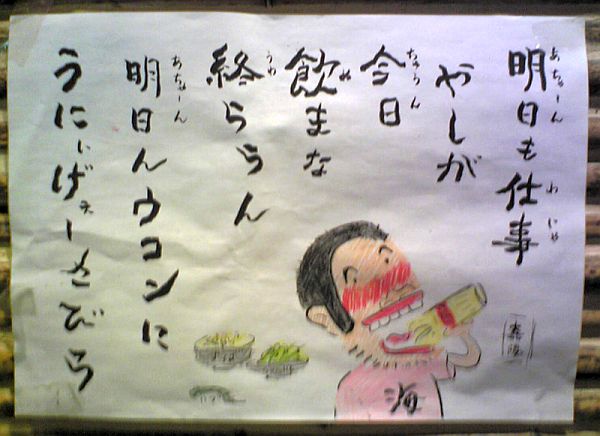 明日も仕事
あちゃーん わ にゃ
やしが
今日
ちゅうん
飲まな
ぬ
終ららん
うわ
明日んウコンに
あちゃーん
うにぃげぇーさびら
海